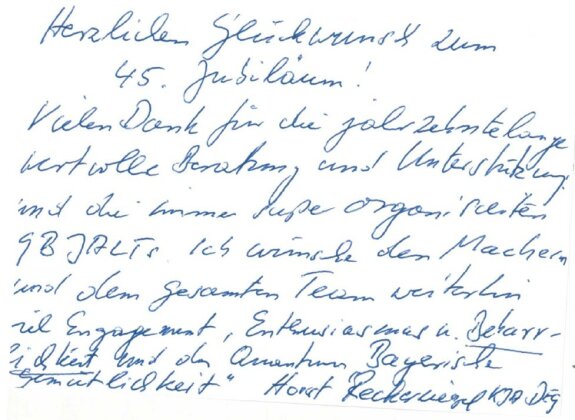 Herzlichen Glückwunsch zum
45. Jubiläum!
Vielen Dank für die jahrzehntelange
wertvolle Beratung und Unterstützung
und die immer super organisierten
ich wünsche den Machern
und dem gesamten Team weiterhin
viel Engagement, Enthusiasmus u. Beharr-
lichkeit und das Quantum Bayerische
Gemütlichkeit" Horst